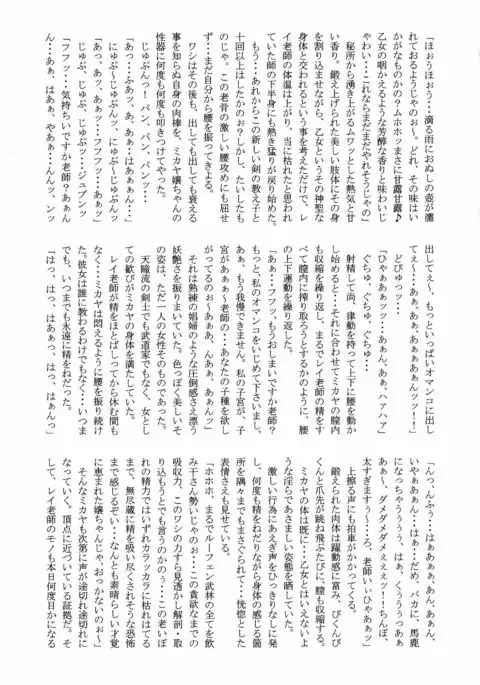 「ほぉうほぉう…滴る雨におぬしの壺が濡
れておるようじゃのぉ～。どれ、その味はい
かがなものかの？ムホホッまさに甘露甘露♪
乙女の咽かえるような芳醇な香りと味わいじ
ゃわい…これならまだまだやれそうじゃの」
秘所から湧き上がるムワッとした熱気と甘
い香り。鍛え上げられた美しい肢体にその身
を割り込ませながら、乙女というその神聖な
身体と交われるという事を考えただけで、レ
イ老師の体温は上がり、当に枯れたと思われ
ていた師の下半身にも熱き猛りが戻り始めた。
もう…あれからこの新しい剣の教え子と
十回以上はしたかのぉ？しかし、たいしたも
のじゃ。この老骨の激しい腰攻めにも屈せ
ず…まだ自分から腰を振ってきよる。
ワシはその後も、出しても出しても衰える
事を知らぬ自身の肉棒を、ミカヤ嬢ちゃんの
性器に何度も何度も叩きつけてやった。
じゅぷんっ！パン、パン、パンッ…
「あっ…ふあッ、あ、あぁ…はぁぁぁん…」
にゅぷ～じゅぷんッ、にゅぷ～じゅぷんッ
「あっ、あッ、あぁッ…フフッ…あぁッ」
じゅぷ、じゅぷッ、じゅぷッ…ジュプンッ
「フフッ…気持ちいですか老師？あぁん
ん…あぁ、はあぁ、やあぁ…んんッ、ンッ
出してぇ～、もっといっぱいオマンコに出し
てぇ～…あぁ、あぁ、あぁぁぁんッッ！！」
どぴゅっッ…
「ひゃぁぁぁッ…あぁん、あぁ、ハァハァ」
ぐちゅ、ぐちゅ、ぐちゅ…
射精して尚、律動を持って上下に腰を動か
し始めると…それに合わせてミカヤの膣内
も収縮を繰り返し、まるでレイ老師の精をす
べて膣内に搾り取ろうとするかのように、腰
の上下運動を繰り返した。
「あぁ…フフッ、もうおしまいですか老師？
もっと、私のオマンコをいじめて下さいまし。
あぁ、もう我慢できません。私の子宮が、子
宮があぁぁぁ～老師の…あなたの子種を欲し
がってるのぉ～あぁぁ、んあぁ、あぁんッ」
それは熟練の娼婦のような圧倒感さえ漂う
妖艶さを振りまいていた。色っぽく美しいそ
の姿は、ただ一人の女性そのものであった。
天瞳流の剣士でも武道家でもなく、女とし
ての歓びがミカヤの身体を満たしていた。
レイ老師が精をほとばしってから休む間も
なく…ミカヤは悶えるように腰を振り続け
た。彼女は誰に教わるわけでもなく…いつま
でも、いつまでも永遠に精をねだった。
「はっ、はっ、はぁぁっ、はっ、はぁんっ」
「んっ、んふぅ…はぁぁぁぁ、あん、あぁん、
いやぁぁん…はぁ…だめ、バカに、馬鹿
になっちゃうぅぅぅ、はぁ、くぅぅぅっあぁ
あぁ～、ダメダメダメぇぇぇッ！！ちんぽ、
太すぎますぅ～…ろ、老師いぃひゃあぁッ」
上擦る声にも拍車がかかってくる。
鍛えられた肉体は躍動感に富み、びくんび
くんと爪先が跳ね飛ぶたびに、膣も収縮する。
ミカヤの体は既に…乙女とはいえないよ
うな淫らであさましい姿態を晒していた。
激しい行為にあえぎ声をひっきりなしに発
し、何度も精をねだりながら身体の感じる箇
所を隅々までもまさぐられて…恍惚とした
表情さえも見せている。
「ホホホ、まるでルーフェン武林の全てを飲
み干さん勢いじゃのぉ…この貪欲なまでの
吸収力、このワシの力すら見透かし解剖・取
り込もうとでも言うのかのぅ…この老いぼ
れの精力ではいずれカラッカラに枯れはてる
まで、無尽蔵に精を吸い尽くされそうな恐怖
まで感じるぞい…なんとも素晴らしい才覚
に恵まれた嬢ちゃんじゃ、おっかないのぉ～」
そんなミカヤも次第に声が途切れ途切れに
なっていく。頂点に近づいている証拠だ。そ
して、レイ老師のモノも本日何度目かになる